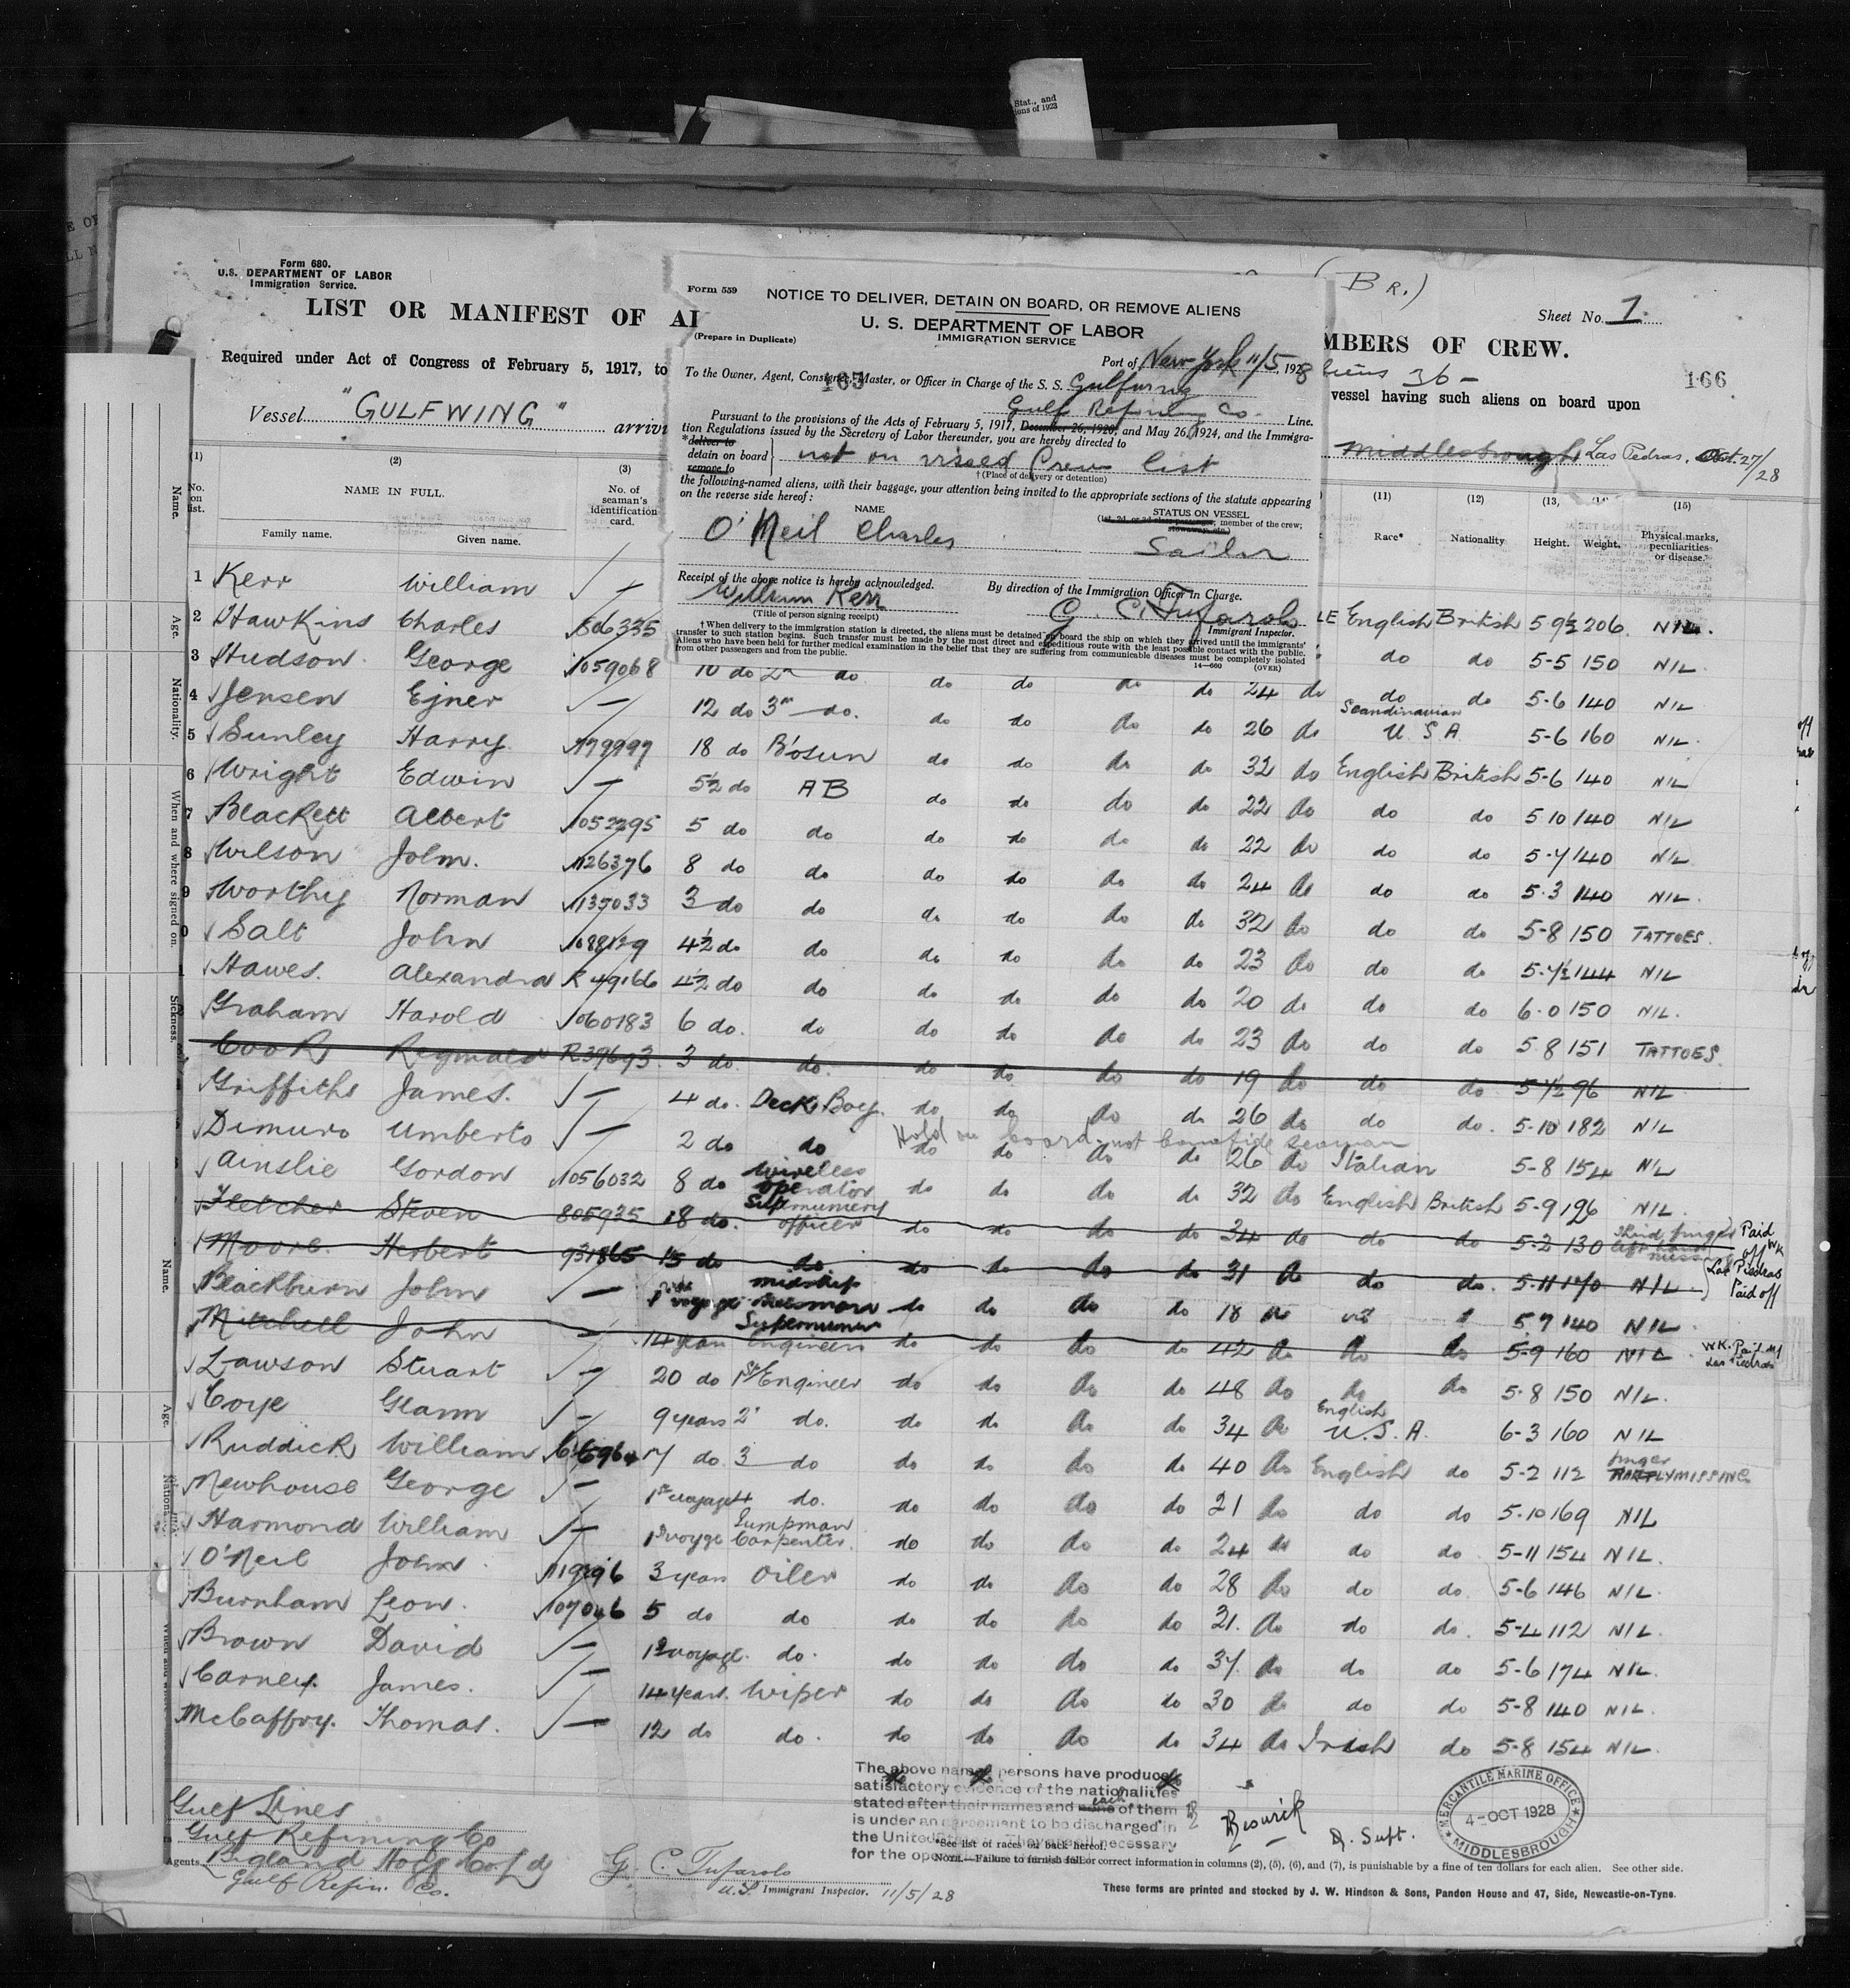 Stat., and
ions of 1923
Form 680.
U.S. DEPARTMENT OF LABOR
Immigration Service.
LIST OR MANIFEST OF AL
Required under Act of Congress of February 5, 1917, to
Vessel "GULFWING" arrivi
Form 559
NOTICE TO DELIVER, DETAIN ON BOARD, OR REMOVE ALIENS
U. S. DEPARTMENT OF LABOR
IMMIGRATION SERVICE
(Prepare in Duplicate)
Port of New York 11/5, 1928
To the Owner, Agent, Consignee, Master, or Officer in Charge of the S. S. Gulfwing
Gulf Refining Co. Line.
Pursuant to the provisions of the Acts of February 5, 1917, December 26, 1920, and May 26, 1924, and the Immigra-
tion Regulations issued by the Secretary of Labor thereunder, you are hereby directed to
*deliver to
detain on board
remove to
not on visaed Crew list
†(Place of delivery or detention)
the following-named aliens, with their baggage, your attention being invited to the appropriate sections of the statute appearing
on the reverse side hereof:
NAME
STATUS ON VESSEL
(1st, 2d, or 3d class passenger, member of the crew;
stowaway, etc.)
O'Neil Charles Sailor
Receipt of the above notice is hereby acknowledged.
By direction of the Immigration Officer in Charge.
William Kerr
G. C. Tufarolo
(Title of person signing receipt)
Immigrant Inspector.
†When delivery to the immigration station is directed, the aliens must be detained on board the ship on which they arrived until the immigrants'
transfer to such station begins. Such transfer must be made by the most direct and expeditious route with the least possible contact with the public.
Aliens who have been held for further medical examination in the belief that they are suffering from communicable diseases must be completely isolated
from other passengers and from the public.
14—660 (OVER)
(BR.)
Sheet No. 1
MBERS OF CREW.
liens 36 -
166
vessel having such aliens on board upon
Middlesbrough, Las Pedras, Oct. 27/28
(1) (2) (3) (11) (12) (13) (15)
No. on list.
NAME IN FULL.
Family name. Given name.
No. of seaman's identification card.
Race* Nationality Height. Weight. Physical marks, peculiarities or disease.
1 Kerr William —
2 Hawkins Charles 806335 LE English British 5 9½ 206 NIL.
3 Hudson George 1059068 10 do 2n do do do do do 24 do do do 5-5 150 NIL
4 Jensen Ejner — 12 do 3rd do. do do do do 26 do Scandinavian do U S A do 5-6 140 NIL
5 Sunley Harry 179997 18 do B'osun do do do do 32 do English British 5-6 160 NIL
6 Wright Edwin — 5½ do AB do do do do 22 do do do 5-6 140 NIL
7 Blackett Albert 1052295 5 do do do do do do 22 do do do 5 10 140 NIL
8 Wilson John. 1126376 8 do do do do do do 24 do do do 5-7 140 NIL
9 Worthy Norman 1135033 3 do do do do do do 32 do do do 5-3 140 NIL
0 Salt John 4½ do do do do do do 23 do do do 5-8 150 TATTOES.
1 Hawes. Alexandra R 49166 4½ do do do do do do 20 do do do 5-7½ 144 NIL
Graham Harold 1060183 6 do. do do do do do 23 do do do 6-0 150 NIL.
Cook Reginald R39693 3 do. do. do do do do 19 do do do 5 8 151 TATTOES
Griffiths James. — 4 do. Deck Boy. do do do do 26 do do do. 5 ½ 96 NIL
Hold on board - not bonafide seaman
Dimuro Umberto — 2 do do do do do do 26 do Italian 5-10 182 NIL
Ainslie Gordon 1056032 8 do Wireless operator do do do do 32 do English British 5-8 154 NIL
Fletcher Steven 805935 18 do. Supernumery officer do do do do 34 do do do 5-9 196 NIL.
Moore. Herbert 931865 15 do do do do do do 31 do do do. 5-2 130 Third finger left hand missing Paid off WK
Blackburn John — 1st voyage midship do do do do 18 5-11 170 NIL. Las Piedras Paid off
Mitchell John — 14 years Supernumer Engineer do do do do 42 do do do 5 7 140 NIL
Lawson Stuart — 20 do 1st Engineer do do do do 48 do do do 5-9 160 NIL WK. Paid off Las Piedras
Coye Glann — 9 years 2' do. do do do do 34 do English U. S. A. 5-8 150 NIL.
Ruddick William 7 do 3 do do do do do 40 do English do 6-3 160 NIL
Newhouse George — 1st voyage 4 do. do do do do 21 do do do 5-2 112 finger PARTLY MISSING
Harmond William — 1st voyge Pumpman Carpenter. do do do do 24 do do do. 5-10 169 NIL
O'Neil John 3 years Oiler do do do do 28 do do do. 5-11 154 NIL.
Burnham Leon. 107046 5 do do do do do do 31. do do do. 5-6 146 NIL
Brown David — 1st voyage. do. do do do do 37. do do do 5-4 112 NIL.
Carney. James. — 14 years. Wiper do do do do 30 do do do 5-6 174 NIL.
McCaffry. Thomas. — 12 do do. do do do do 34 do Irish do 5-8 140 NIL.
5-8 154 NIL.
The above named persons have produced
satisfactory evidence of the nationalities
stated after their names and each of them
is under an agreement to be discharged in
the United
for the ope
*See list of races on back hereof.
Beswick
D. Supt.
MERCANTILE MARINE OFFICE
4-OCT 1928
MIDDLESBROUGH
Gulf Lines
Gulf Refining Co
Agents
Gulf Refin. Co.
G. C. Tufarolo
U.S. Immigrant Inspector. 11/5/28
NOTE.—Failure to furnish full or correct information in columns (2), (5), (6), and (7), is punishable by a fine of ten dollars for each alien. See other side.
These forms are printed and stocked by J. W. Hindson & Sons, Pandon House and 47, Side, Newcastle-on-Tyne.
Name.
Age.
Nationality.
When and where signed on.
Sickness.
Name.
Age.